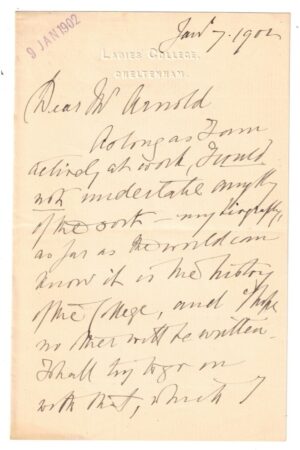 9 JAN 1902
Jan^y 7. 1902
LADIES' COLLEGE,
CHELTENHAM.
Dear Mr Arnold
As long as I am
actively at work, I would
not undertake anything
of the sort - my biography,
as far as the world can
know it is the history
of the College, and I hope
no other will be written.
I shall try to go on
with that, which I